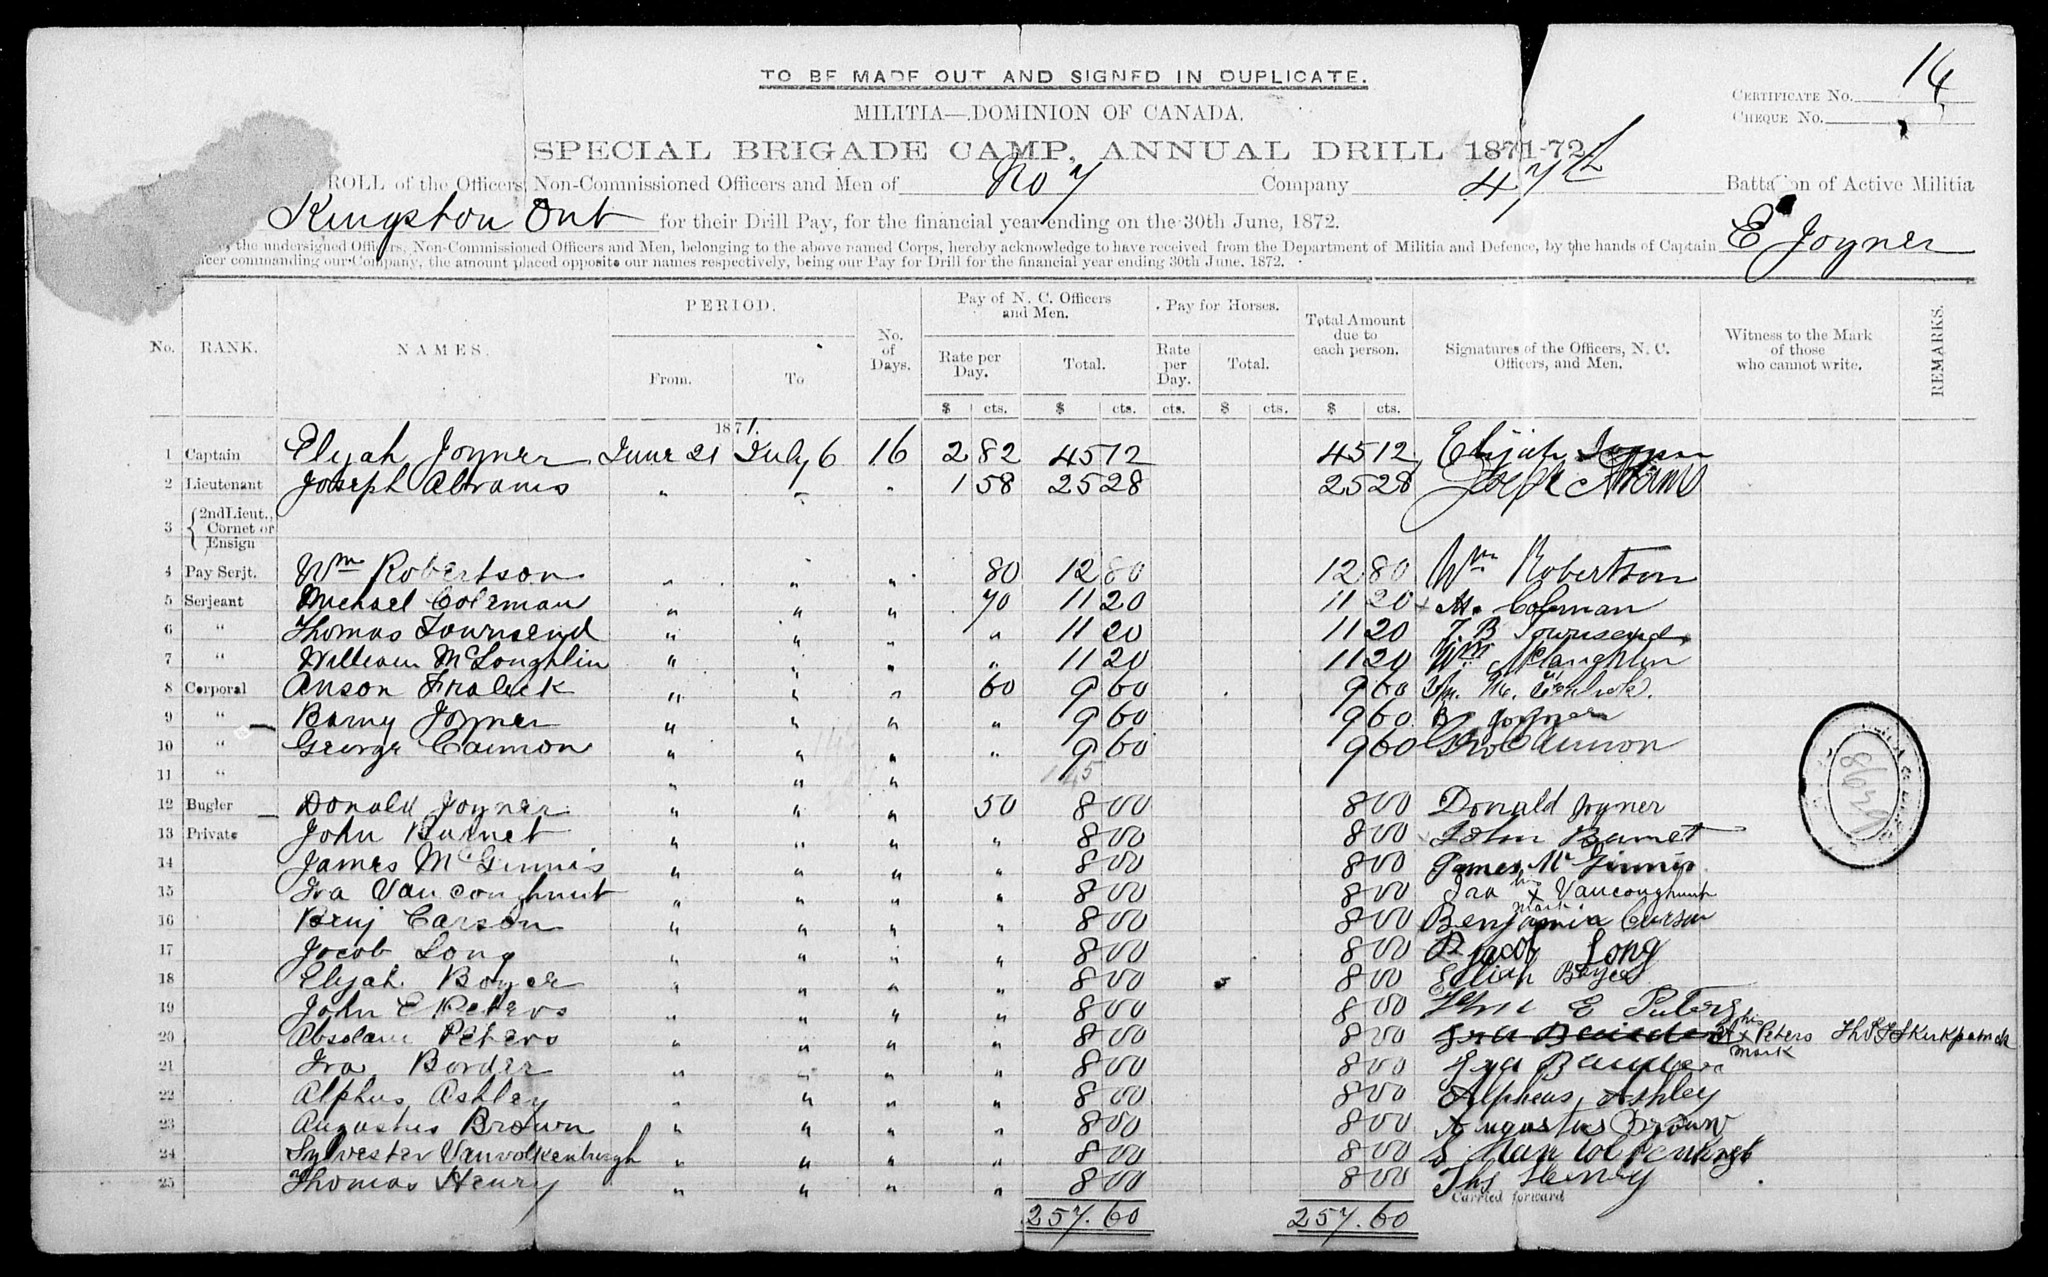 TO BE MADE OUT AND SIGNED IN DUPLICATE.
14
CERTIFICATE No.
MILITIA—DOMINION OF CANADA.
CHEQUE No.
SPECIAL BRIGADE CAMP, ANNUAL DRILL 1871-72
ROLL of the Officers, Non-Commissioned Officers and Men of No 7 Company 47th Battalion of Active Militia
Kingston Ont for their Drill Pay, for the financial year ending on the 30th June, 1872.
the undersigned Officers, Non-Commissioned Officers and Men, belonging to the above named Corps, hereby acknowledge to have received from the Department of Militia and Defence, by the hands of Captain E Joyner
commanding our Company, the amount placed opposite our names respectively, being our Pay for Drill for the financial year ending 30th June, 1872.
No. RANK. NAMES. PERIOD. From. To No. of Days. Pay of N. C. Officers and Men. Rate per Day. Total. Pay for Horses. Rate per Day. Total. Total Amount due to each person. Signatures of the Officers, N. C. Officers, and Men. Witness to the Mark of those who cannot write. REMARKS.
$ cts. $ cts. cts. $ cts. $ cts.
1871.
1 Captain Elijah Joyner June 21 July 6 16 2 82 45 12 45 12 Elijah Joyner
2 Lieutenant Joseph Abrams " " " 1 58 25 28 25 28 Joseph Abrams
3 {2nd Lieut., Cornet or Ensign
4 Pay Serjt. Wm Robertson " " " 80 12 80 12 80 Wm Robertson
5 Serjeant Michael Coleman " " " 70 11 20 11 20 x M. Coleman
6 " Thomas Townsend " " " " 11 20 11 20 T B Townsend
7 " William McLoughlin " " " " 11 20 11 20 Wm McLaughlin
8 Corporal Anson Fraleck " " " 60 9 60 9 60
9 " Barny Joyner " " " " 9 60 9 60 B Joyner
10 " George Cannon " " " " 9 60 9 60 Geo Cannon
11 " " " "
12 Bugler Donald Joyner " " " 50 8 00 8 00 Donald Joyner
13 Private John Burnet " " " " 8 00 8 00 John Burnet
14 James McGinnis " " " " 8 00 8 00 James McGinnis
15 Ira Vancoughnut " " " " 8 00 8 00 Ira his x mark Vancoughnut
16 Benj Carson " " " " 8 00 8 00 Benjamin Carson
17 Jocob Long " " " " 8 00 8 00 Jacob Long
18 Elijah Boyer " " " " 8 00 8 00 Elijah Boyer
19 John E Peters " " " " 8 00 8 00 John E Peters
20 Absolam Peters " " " " 8 00 8 00 A his x mark Peters Thos Kirkpatrick
21 Ira Border " " " " 8 00 8 00 Ira
22 Alphus Ashley " " " " 8 00 8 00 Alpheus Ashley
23 Augustus Brown " " " " 8 00 8 00 Augustus Brown
24 Sylvester Vanvolkenburgh " " " " 8 00 8 00 S
25 Thomas Henry " " " " 8 00 8 00 Thos Henry
Carried forward
257.60 257.60